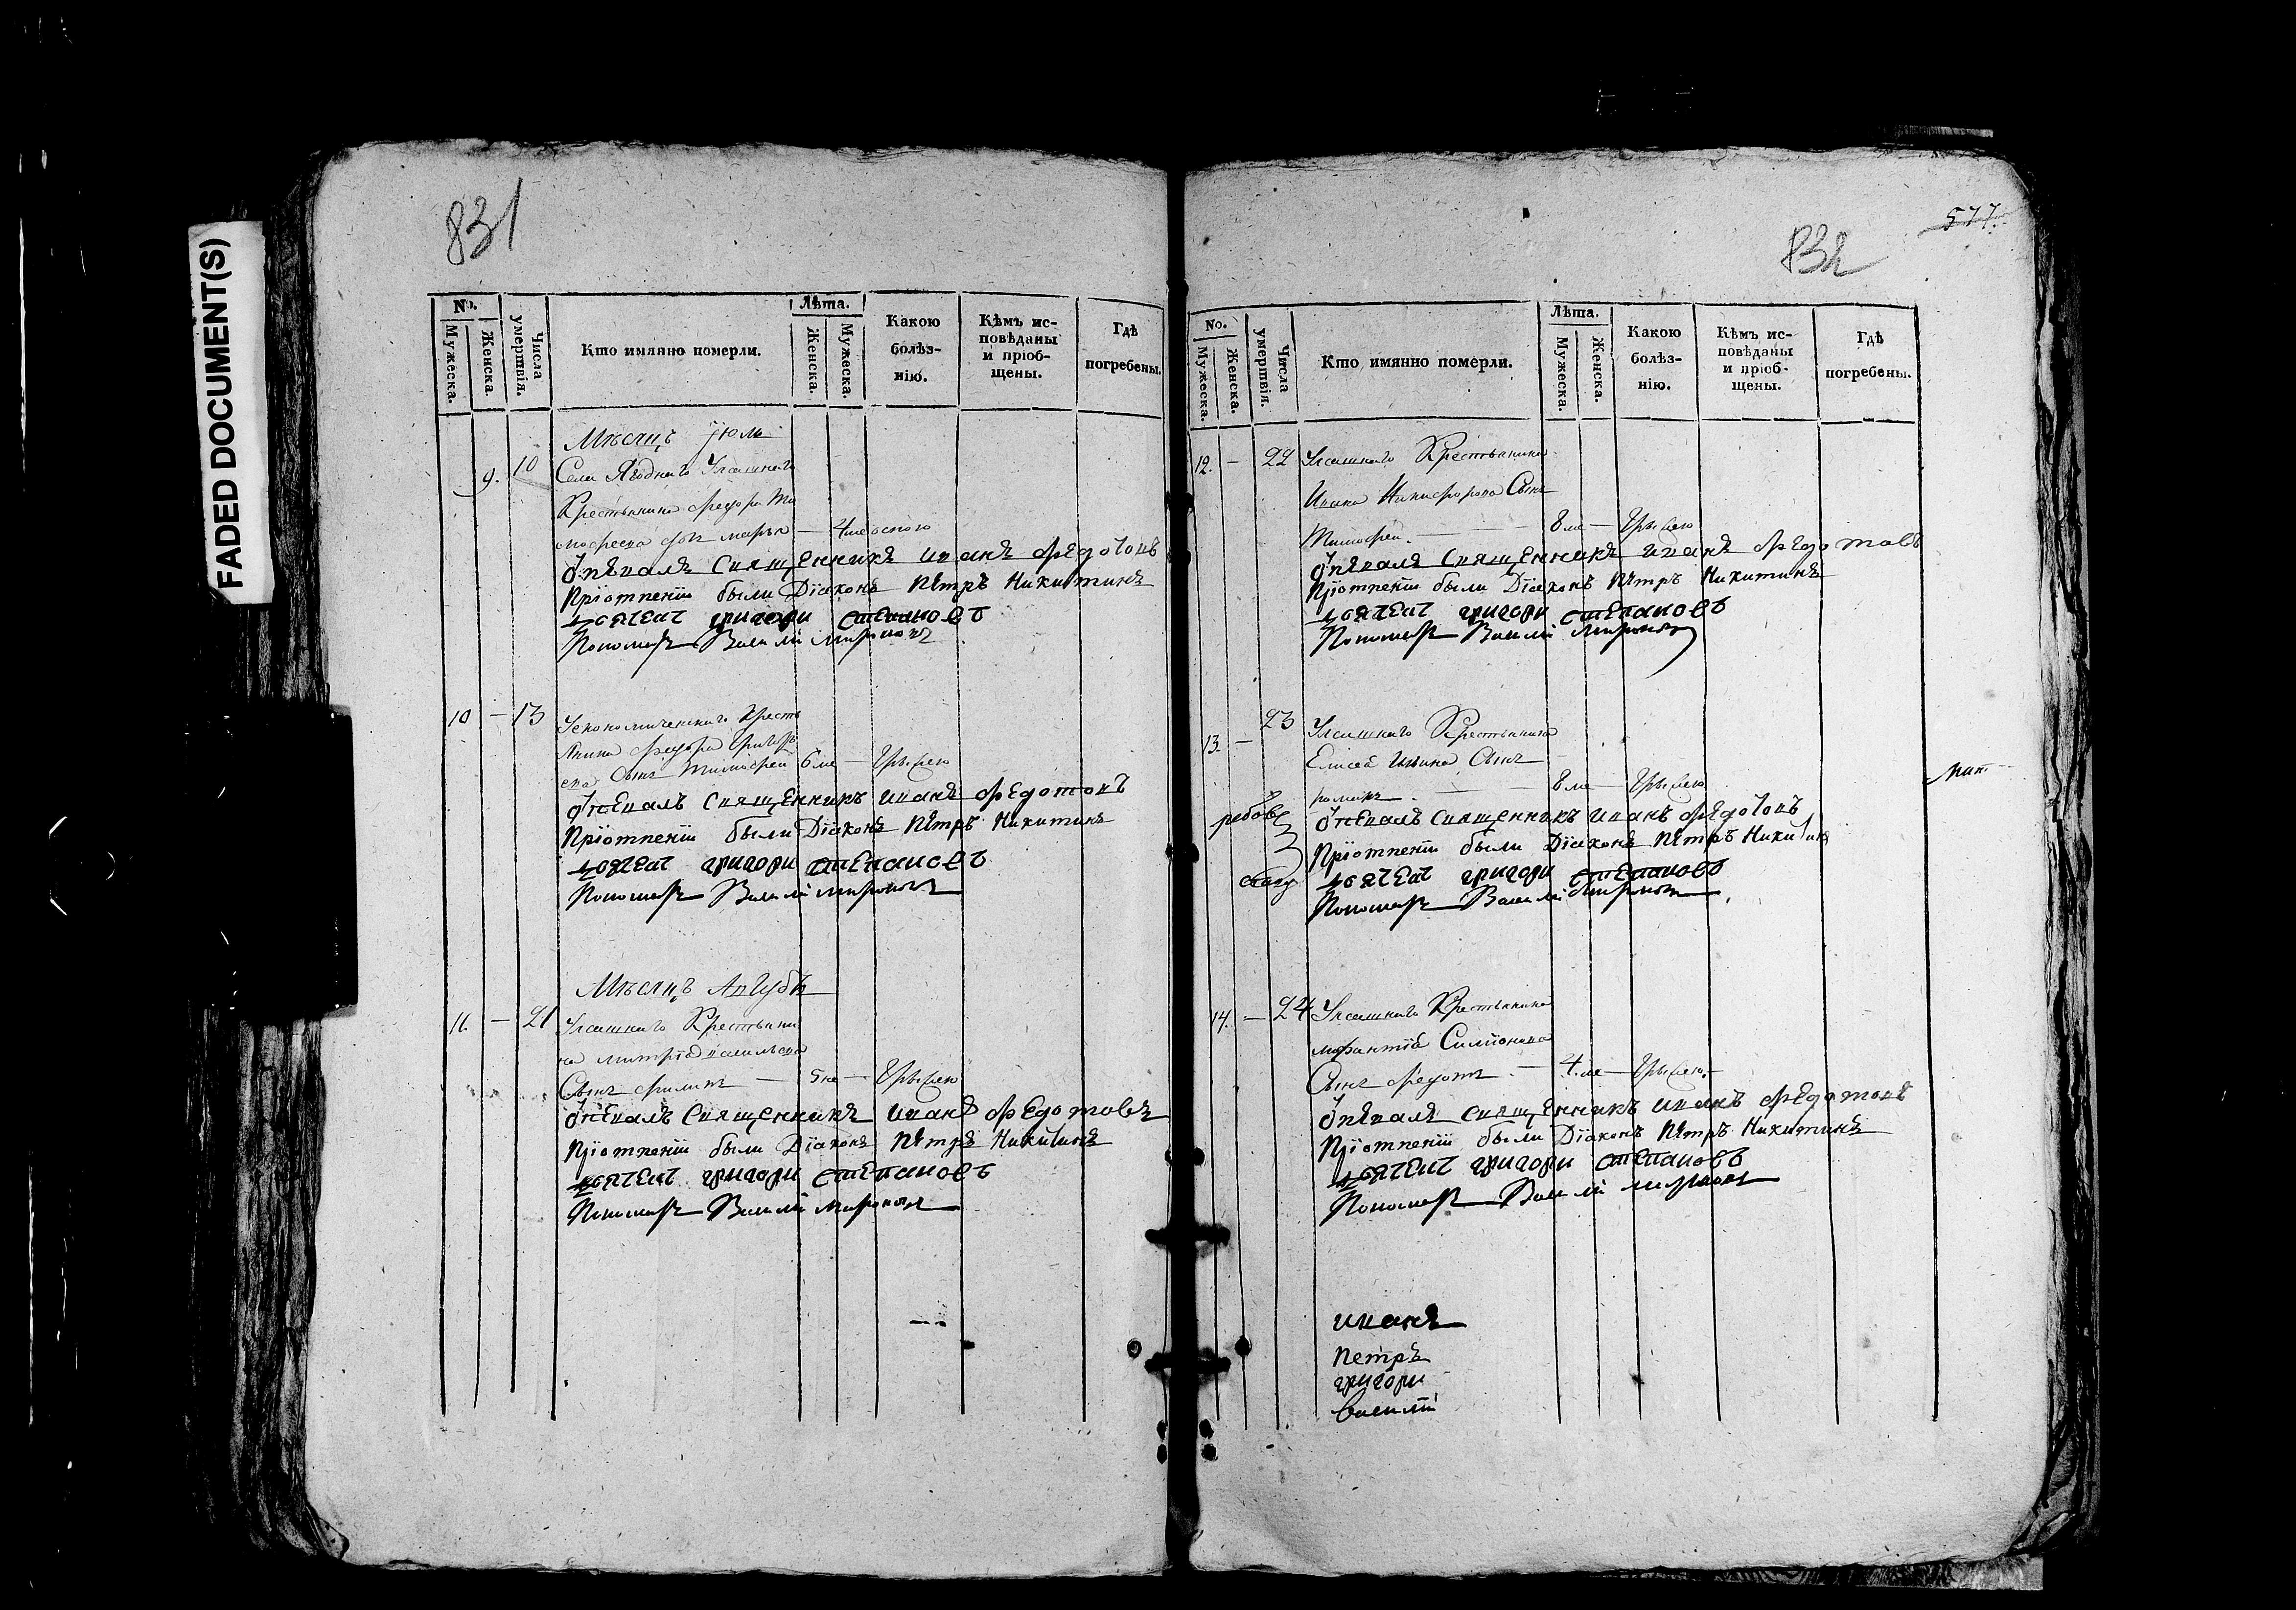 FADED DOCUMENT(S)
831
No.
Мужеска.
Женска.
Числа умертвія.
Кто имянно померли.
Лѣта.
Женска.
Мужеска.
Какою болѣз-
нію.
Кѣмъ ис-
повѣданы
и пріоб-
щены.
Гдѣ
погребены.
Мѣсяцъ Іюль
9. 10 Села Ягоднаго Удѣльнаго
Крестьянина Федора Ти
мофеева дочь марья — 4
Отпѣвалъ Священникъ иванъ Федотовъ
Приотпении были Діаконъ Петръ Никитинъ
дьячекъ григори степановъ
Пономарь Василий Миронов
10 — 13 экономическаго Кресть
янина Федора Григорь
ева Сынъ Тимофей 6 ле —
Отпевалъ Священникъ иванъ Федотовъ
Приотпении были Діаконъ Петръ Никитинъ
дьячекъ григори степановъ
Пономарь Василий Миронов
Мѣсяцъ Августъ
11. — 21 Удѣльнаго Крестьяни
на митрія васильева
Сынъ филипъ — 5 ле —
Отпевалъ Священникъ иванъ Федотовъ
Приотпении были Діаконъ Петръ Никитинъ
дьячекъ григори степановъ
Пономарь Василий Миронов
577.
832
No.
Мужеска.
Женска.
Числа умертвія.
Кто имянно померли.
Лѣта.
Мужеска.
Женска.
Какою
болѣз-
нію.
Кѣмъ ис-
повѣданы
и пріоб-
щены.
Гдѣ
погребены.
12. — 22 Удѣльнаго Крестьянина
Ивана Никифорова Сынъ
Тимофей. — 8 ле —
Отпѣвалъ Священникъ иванъ Федотовъ
Приотпении были Діаконъ Петръ Никитинъ
дьячекъ григори степановъ
Пономарь Василий Миронов
13. — 23 Удѣльнаго Крестьянина
Елисея Ильина Сынъ
романъ. — 8 ле —
Отпевалъ Священникъ иванъ Федотовъ
Приотпении были Діаконъ Петръ Никитинъ
дьячекъ григори степановъ
Пономарь Василий Миронов
14. — 24 Удѣльнаго Крестьянина
Симионова
Сынъ Федотъ. — 4 ле —
Отпѣвалъ Священникъ иванъ Федотовъ
Приотпении были Діаконъ Петръ Никитинъ
дьячекъ григори степановъ
Пономарь Василий миронов
иванъ
петръ
григори
василий